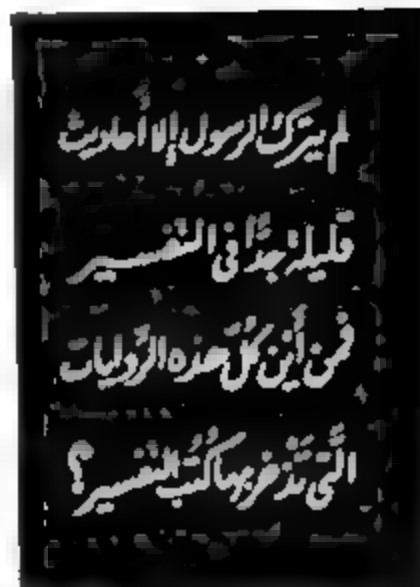 لم يترك الرسول إلا أحاديث
قليلة جدًّا فى التفسير
فمن أين كُلّ هذه الرِّوايات
الَّتى تَذخر بها كُتُب التفسير؟